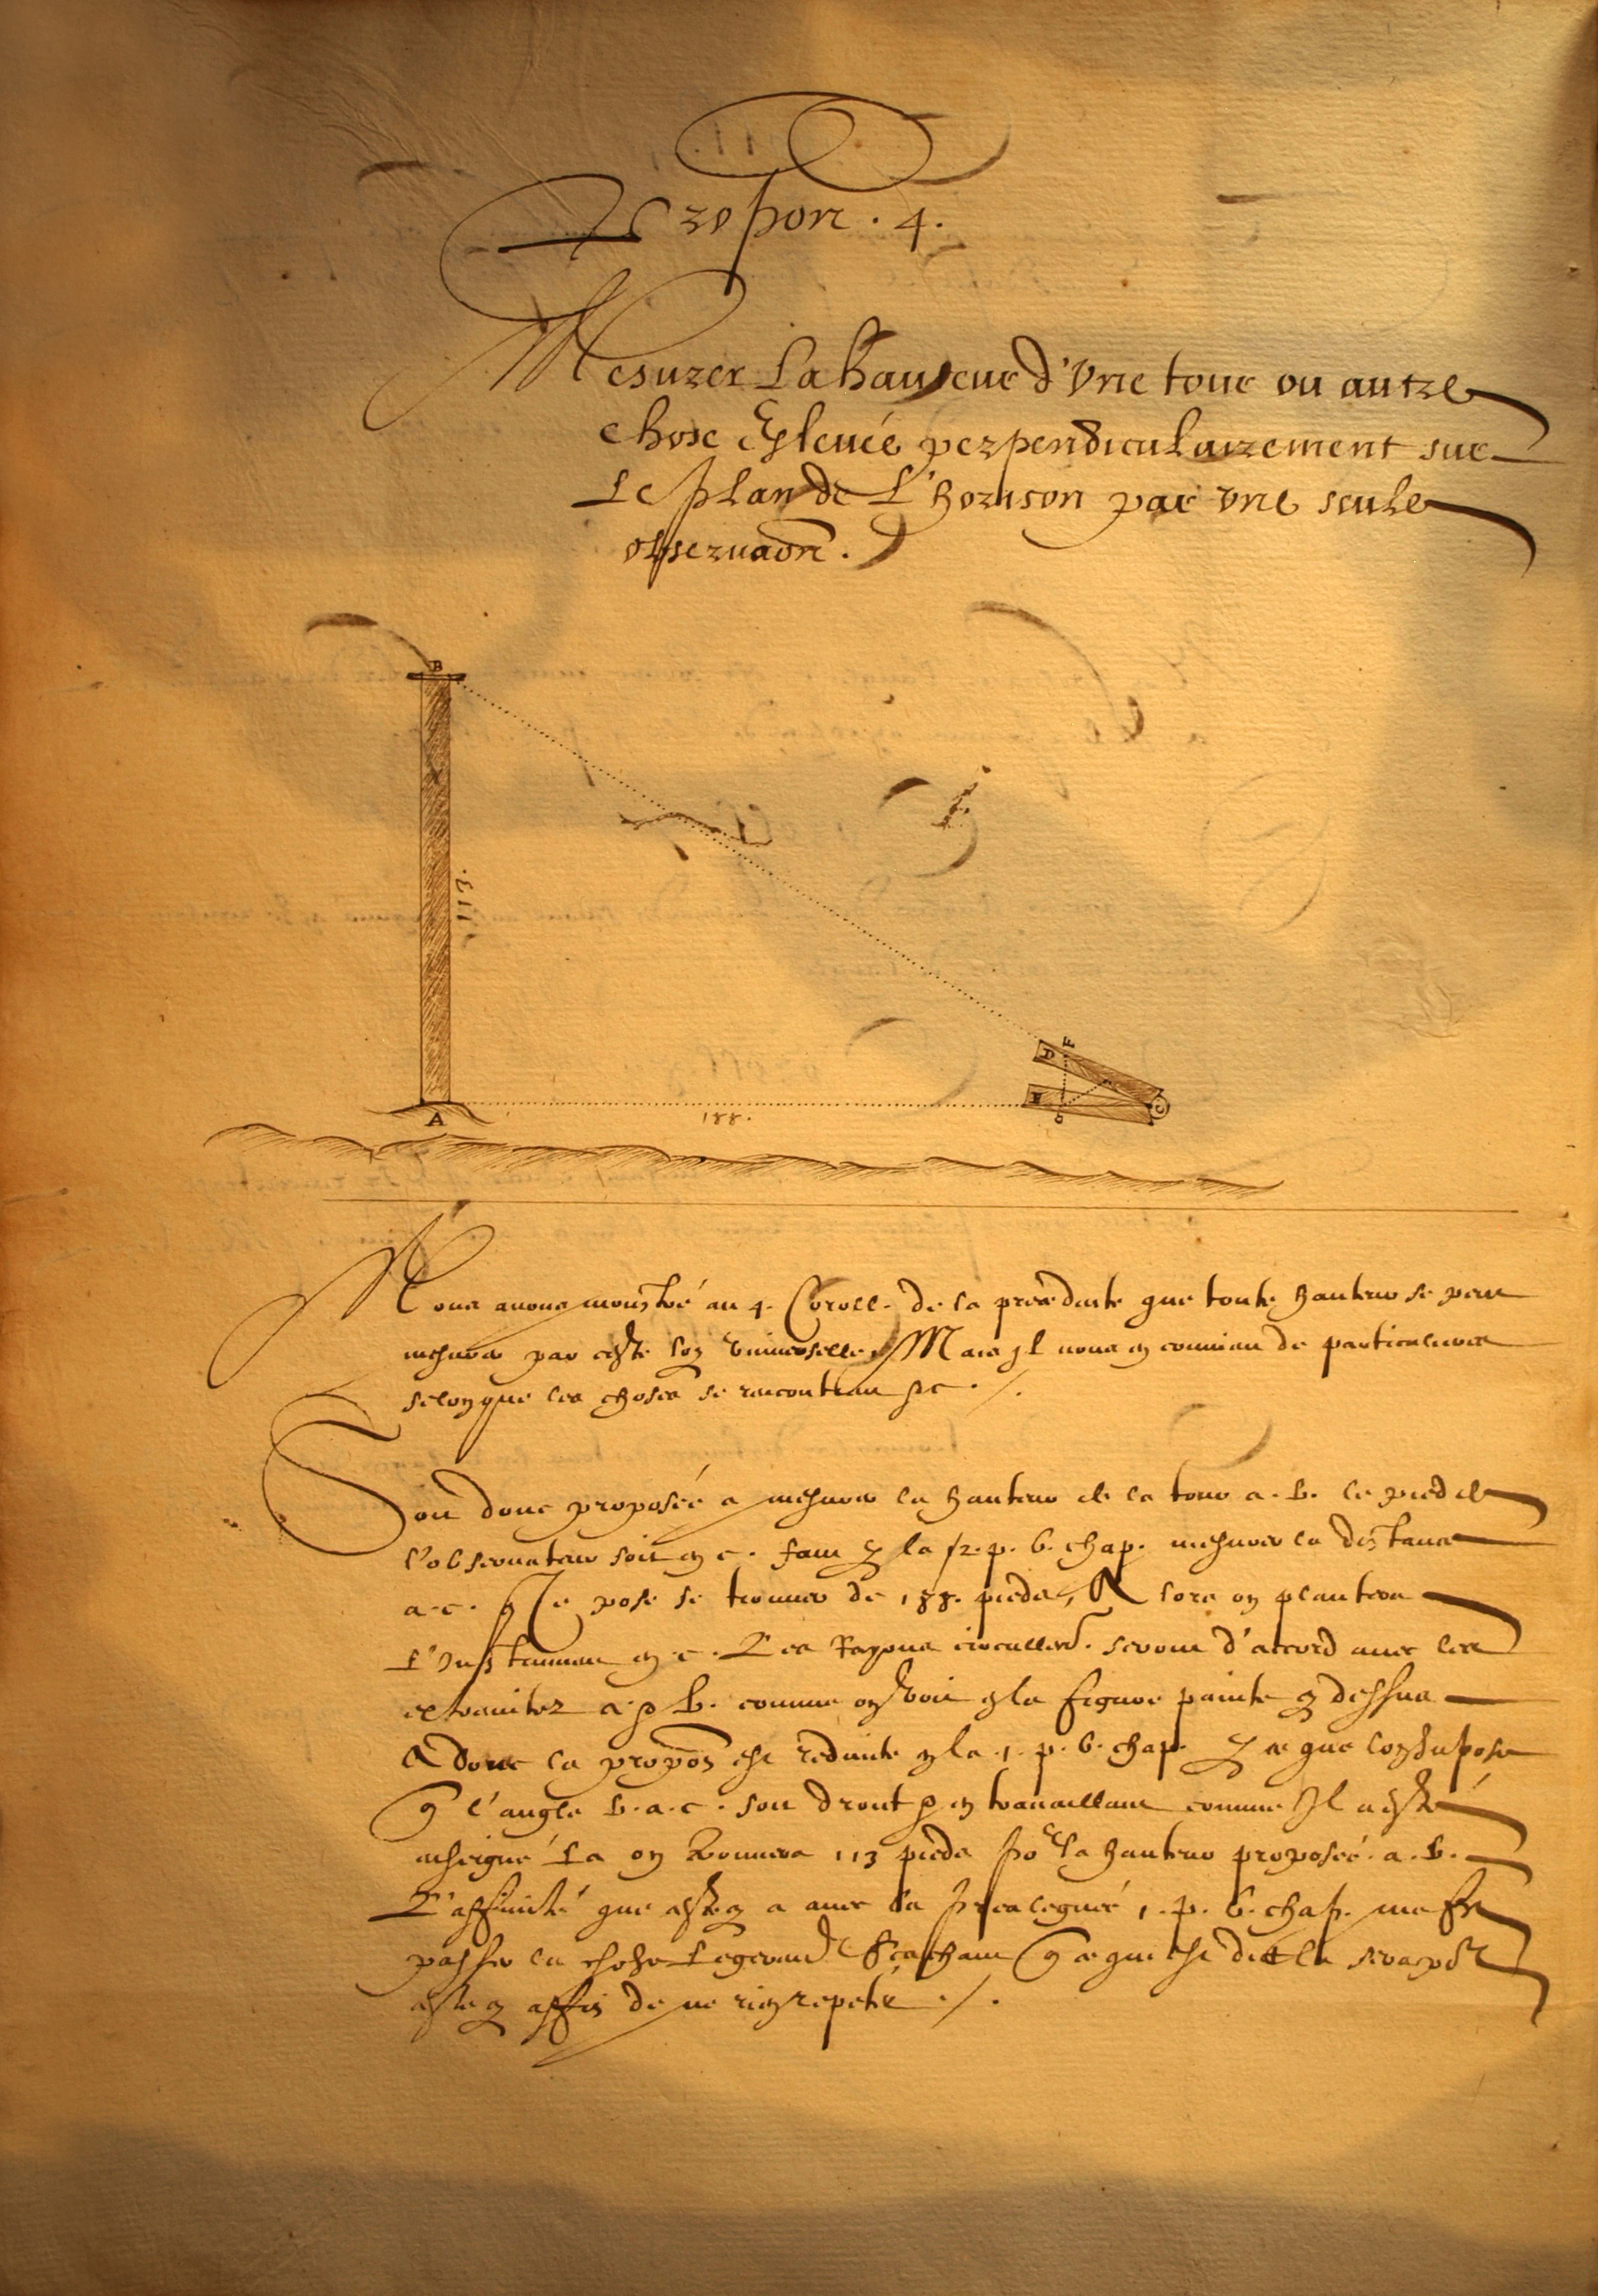 Propon . 4.
Mesurer La hauteur d'Vne tour ou autre
chose Esleuée perpendiculairement sur
Le plan de L'horison par vne seule
obseruaon .
B
113.
F
D
E
C
G
A
188.
Nous auons monstré au 4. Coroll. de la precedente que toute hauteur se peut
mesurer par ceste loy vniuerselle, Mais Jl nous en conuient de particulieres
selon que les choses se rencontrent &c ./.
Soit donc proposée a mesurer la hauteur de la tour a. b. le pied de
l'obseruateur soit en c. faut la 12. p. 6. chap. mesurer la distance
a. c. Je pose se trouuer de 188. pieds, Alors on plantera
L'Instrument en c. Les Rayons seront d'accord auec les
extremitez a & b. comme on voit en la figure painte cy dessus
Adonc la propon est reduite en la 1. p. 6. chap. ce que lon supose
l'angle b. a. c. soit droit & en trauaillant comme Jl a esté
enseigné La on trouuera 113 pieds por la hauteur proposée a. b.
L'affinité que ceste cy a auec la prealeguée 1. p. 6. chap. me fait
passer la chose Legerement Sçachant ce qui est dit la sera por
ceste cy affin de ne rien repeter ./.